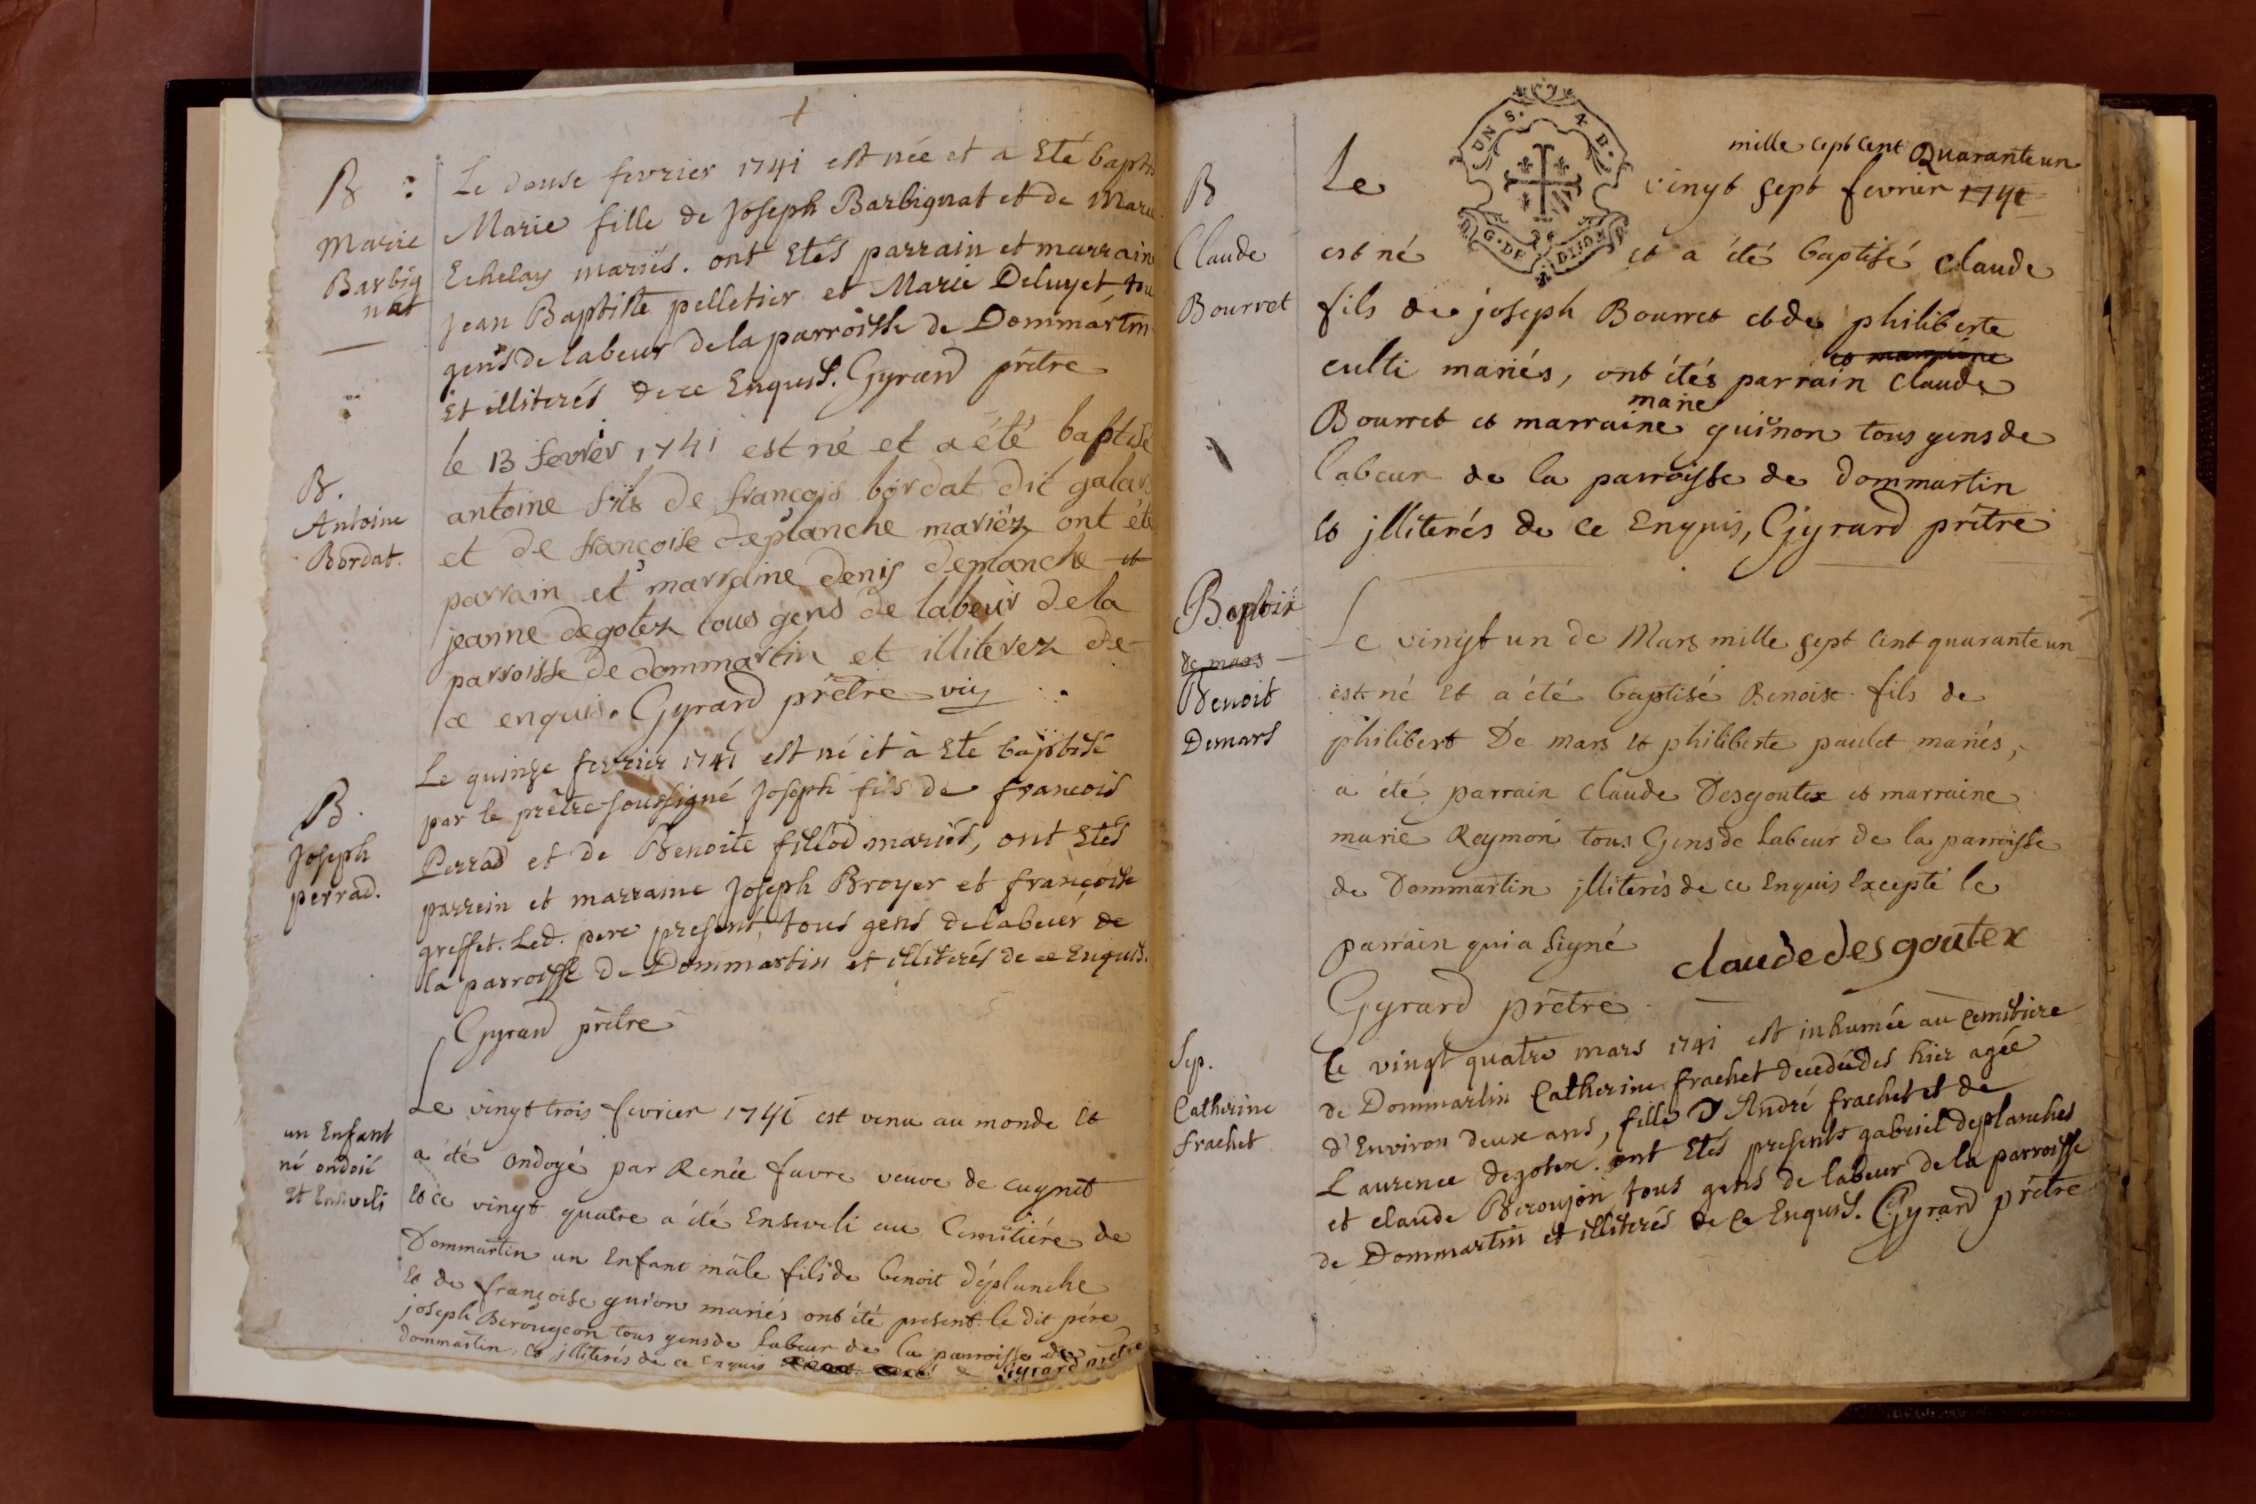 B
Marie
Barbig
nat
Le douse fevrier 1741 est née et a Eté bapti
Marie fille de Joseph Barbignat et de Marie
Echelay mariés. ont Etés parrain et marrain
Jean Baptiste pelletier et Marie Deluyet, tou
gens de labeur de la parroisse de Dommartin
Et illiterés de ce Enquis. Gyrard prêtre
B.
Antoine
Bordat.
le 13 fevrier 1741 est né et a été baptisé
antoine fils de françois bordat dit galar
et de françoise deplanche mariéz ont été
parrain et marraine denis demanche et
jeanne degotex tous gens de labeur de la
parroisse de dommartin et illiterez de
ce enquis. Gyrard prêtre
B.
Joseph
perrad.
Le quinze fevrier 1741 est né et à Eté baptisé
par le prêtre soussigné Joseph fils de francois
Perrad et de Benoite fillod mariés, ont Etés
parrein et marraine Joseph Broyer et françoise
greffet. Led. pere present, tous gens de labeur de
la parroisse de Dommartin et illiterés de ce Enquis.
Gyrard prêtre
un Enfant
né ondoié
et Enseveli
Le vingt trois fevrier 1741 est venu au monde et
a été ondoyé par Renée favre veuve de cugnet
et ce vingt quatre a été Enseveli au Cemitiére de
Dommartin un Enfant mâle fils de benoit déplanche
et de françoise guion mariés ont été present le dit pére
joseph Berougeon tous gens de Labeur de la parroisse de
dommartin, et jlliterés de ce Enquis Gyrard prêtre
UN S. 4 D.
G. DE DIJON
B
Claude
Bourret
mille sept cent Quarante un
Le vingt sept fevrier 1741
est né et a été baptisé Claude
fils de joseph Bourret et de philiberte
culti mariés, ont étés parrain Claude
marie
Bourret et marraine guinon tous gens de
labeur de la parroisse de dommartin
et jlliterés de ce Enquis, Gyrard prêtre
de mars
Benoit
Demars
Le vingt un de Mars mille sept Cent quarante un
est né et a été baptisé Benoist fils de
philibert De mars et philiberte paulet mariés,
a été parrain Claude Desgoutex et marraine
marie Reymon tous Gens de Labeur de la parroisse
de Dommartin jlliterés de ce Enquis Excepté le
parrain qui a Signé claude desgoutex
Gyrard prêtre
Sep.
Catherine
frachet
Le vingt quatre mars 1741 est inhumée au Cemitiere
de Dommartin Catherine frachet decedée dès hier agée
d'Environ deux ans, fille D'André frachet et de
Laurence degotex. ont Etés presents gabriel deplanches
et claude Beroujon tous gens de labeur de la parroisse
de Dommartin et illiterés de Ce Enquis. Gyrard prêtre